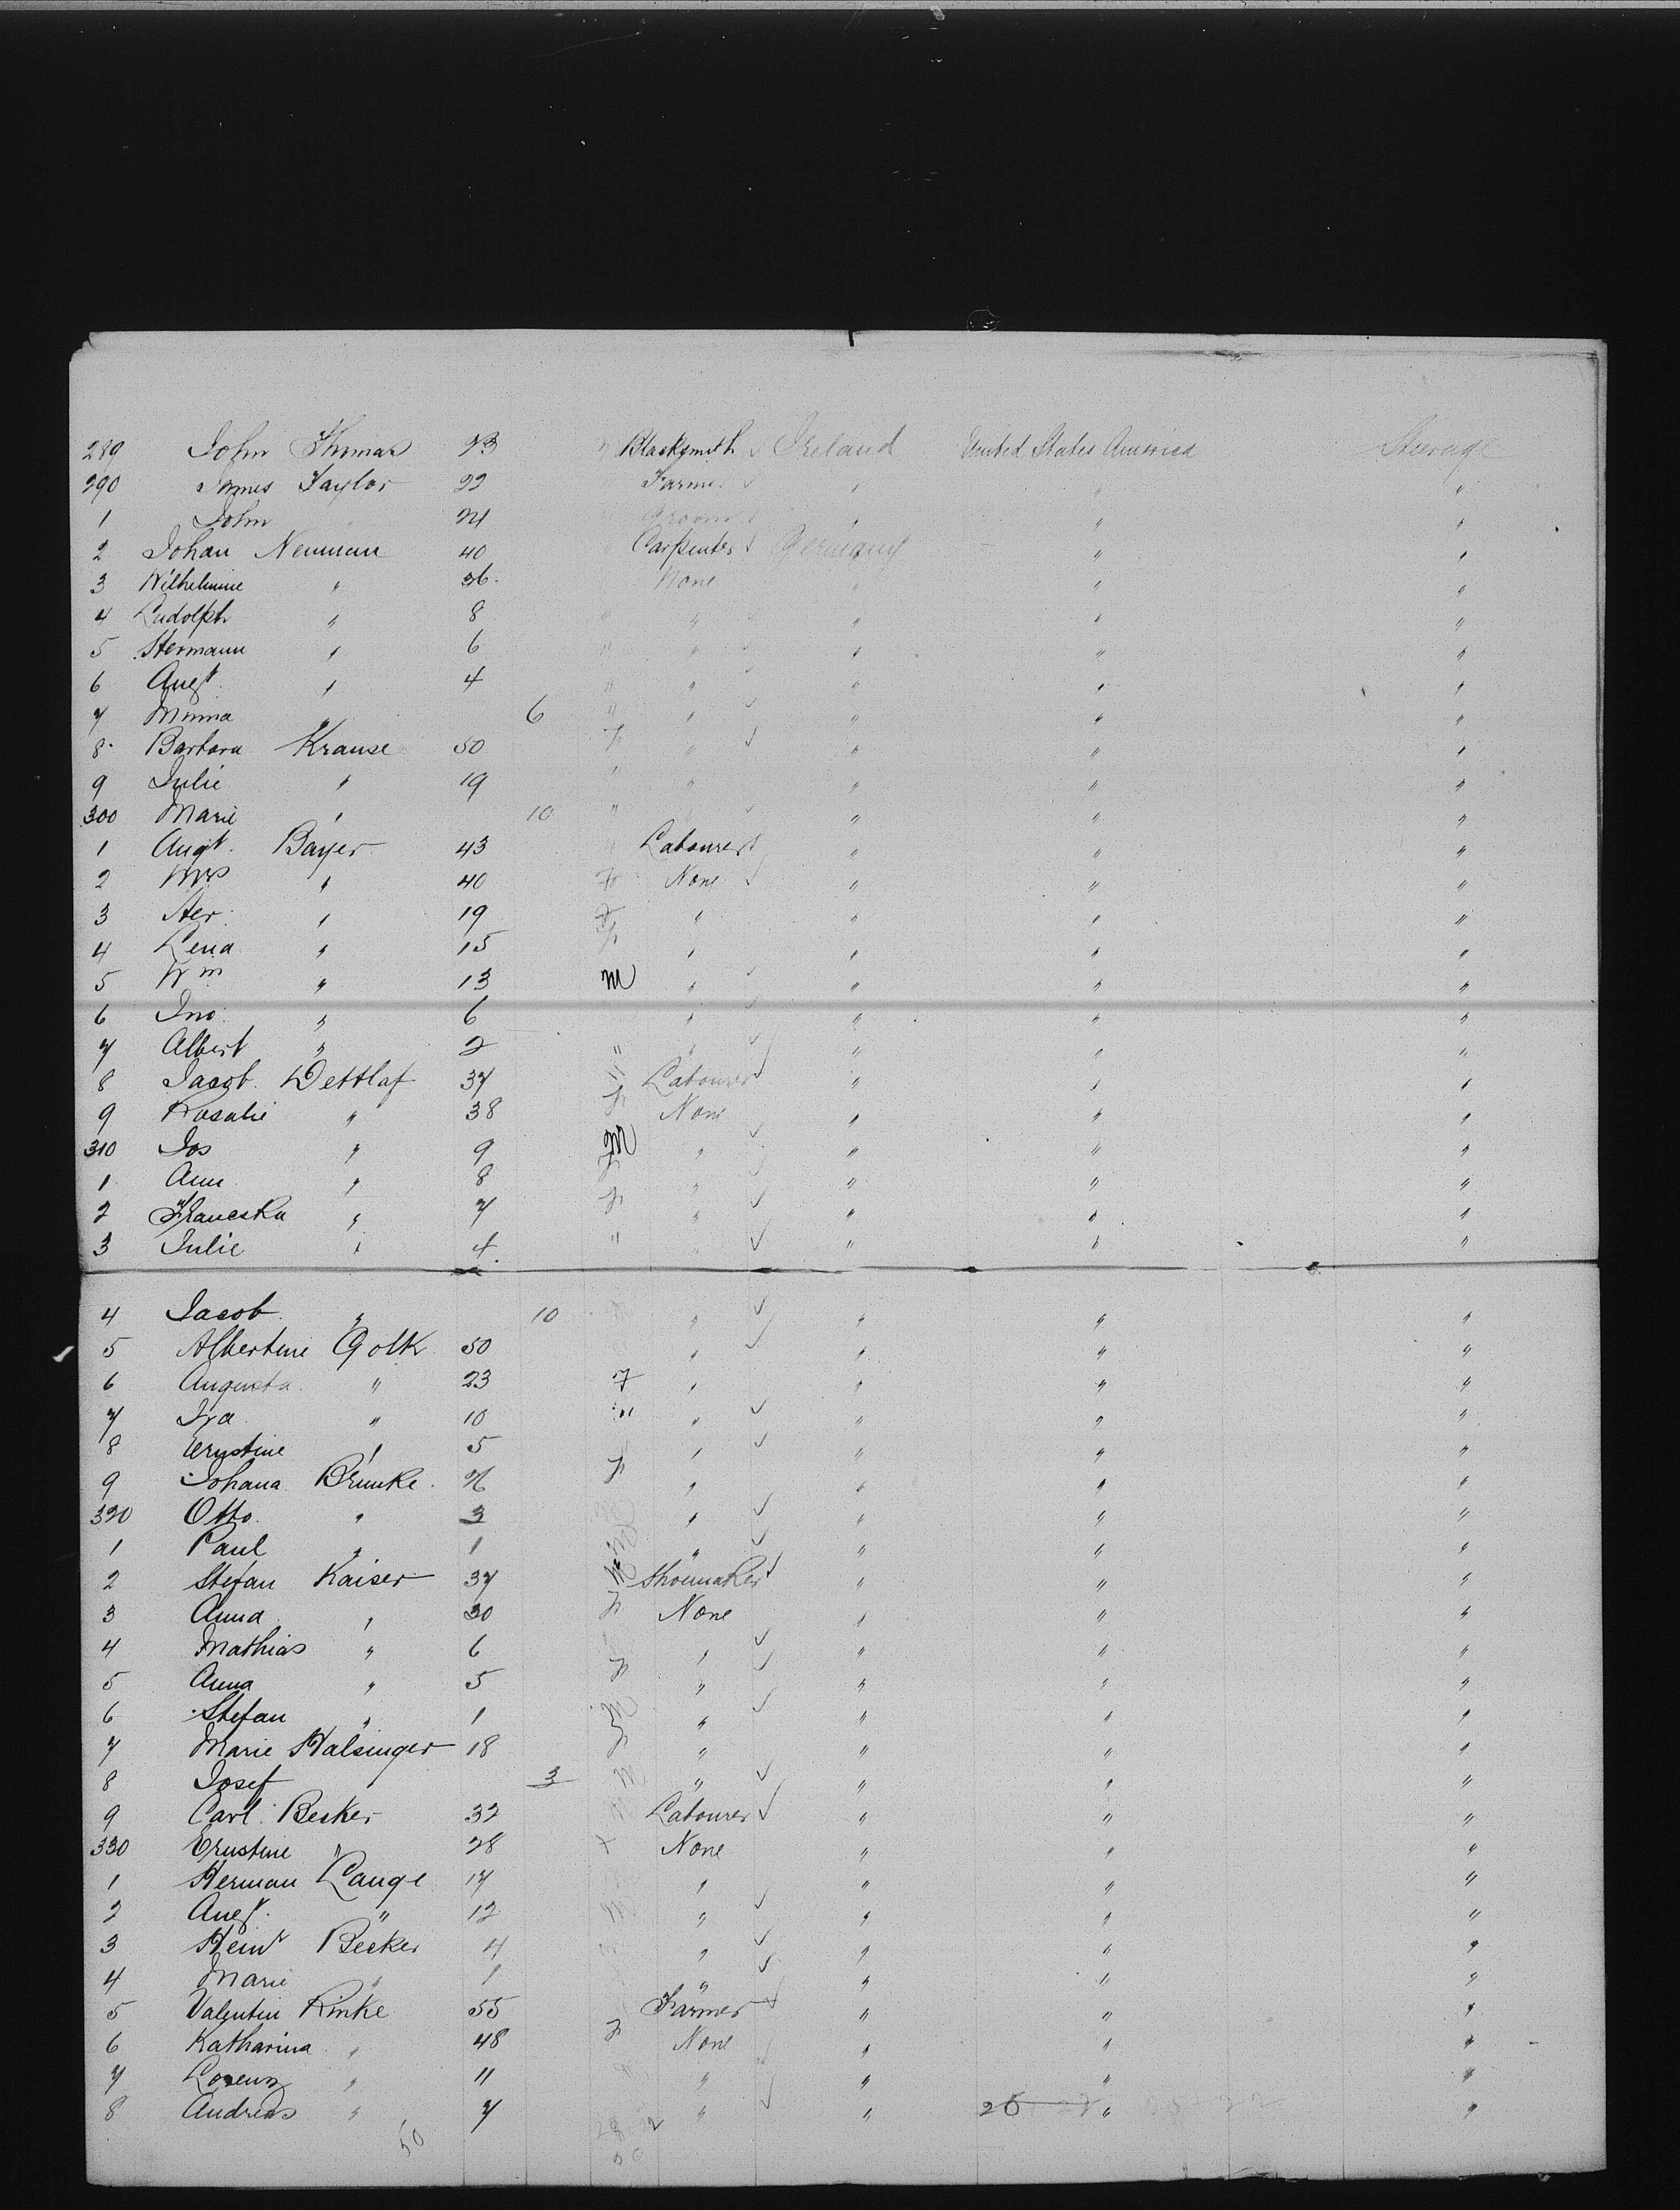 289 John Thomas 23 Blacksmith ✓ Ireland United States America Steerage
290 James Taylor 22 Farmer ✓ " " "
1 John " 24 Groom ✓ " " "
2 Johan Neumann 40 Carpenter ✓ Germany " "
3 Wilhelmine " 36 None " " "
4 Ludolph " 8 " " ✓ " " "
5 Hermann " 6 " " ✓ " " "
6 Augt " 4 " " ✓ " " "
7 Minna " 6 " " ✓ " " "
8 Barbara Krause 50 F " ✓ " " "
9 Julie " 19 " " " " "
300 Marie " 10 " " ✓ " " "
1 Augt. Bayer 43 " Labourer ✓ " " "
2 Mrs " 40 F None ✓ " " "
3 Her. " 19 F " " " "
4 Lena " 15 F " " " "
5 Wm " 13 M " ✓ " " "
6 Jno. " 6 " ✓ " " "
7 Albert " 2 " " ✓ " " "
8 Jacob Dettlaf 37 " Labourer ✓ " " "
9 Rosalie " 38 F None " " "
310 Jos " 9 M " ✓ " " "
1 Ann " 8 F " ✓ " " "
2 Franciska " 7 F " ✓ " " "
3 Julie " 4 " " ✓ " " "
4 Jacob " 10 " ✓ " " "
5 Albertine Golk 50 " ✓ " " "
6 Augusta " 23 F " " " "
7 Iva " 10 " " ✓ " " "
8 Ernstine " 5 " ✓ " " "
9 Johana Brunke 26 F " " " "
320 Otto " 3 " ✓ " " "
1 Paul " 1 M " ✓ " " "
2 Stefan Kaiser 37 M Shoemaker ✓ " " "
3 Anna " 30 F None " " "
4 Mathias " 6 " ✓ " " "
5 Anna " 5 F " ✓ " " "
6 Stefan " 1 M " ✓ " " "
7 Marie Halsinger 18 F " " " "
8 Josef " 3 M " ✓ " " "
9 Carl Becker 32 M Labourer ✓ " " "
330 Ernstine " 28 F None " " "
1 Herman Lange 17 " " " "
2 Augt. " 12 M " ✓ " " "
3 Heinr Becker 4 " ✓ " " "
4 Marie " 1 " ✓ " " "
5 Valentin Rinke 55 Farmer ✓ " " "
6 Katharina " 48 F None " " "
7 Lorenz " 11 " ✓ " " "
8 Andreas " 7 " ✓ " " "
50